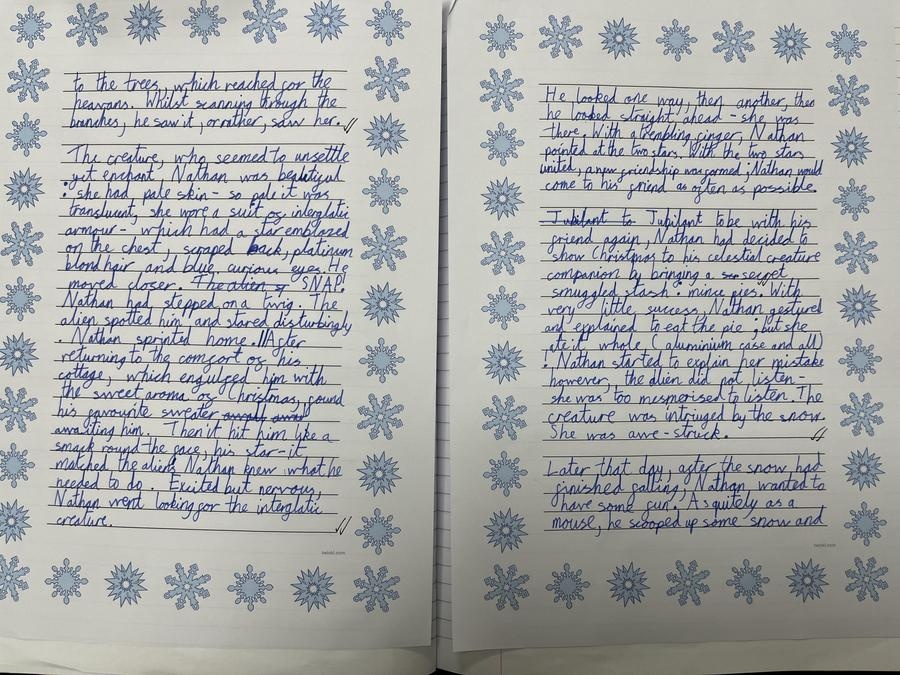 to the trees, which reached for the
heavans. Whilst scanning through the
branches, he saw it, or rather, saw her.
The creature, who seemed to unsettle
yet enchant, Nathan was beautiful
: she had pale skin - so pale it was
translucent, she wore a suit of interglatic
armour - which had a star emblazed
on the chest, scraped back, platinum
blond hair and blue, curious eyes. He
moved closer. The alien s "SNAP!"
Nathan had stepped on a twig. The
alien spotted him and stared disturbingly
. Nathan sprinted home. // After
returning to the comfort of his
cottage, which engulfed him with
the sweet aroma of Christmas, found
his favourite sweater awaiting
awaiting him. Then it hit him like a
smack round the face, his star - it
matched the aliens. Nathan knew what he
needed to do. Exited but nervous,
Nathan went looking for the interglatic
creature.
twinkl.com
He looked one way, then another, then
he looked straight ahead - she was
there. With a trembling finger, Nathan
pointed at the two stars. With the two stars
united, a new friendship was formed; Nathan would
come to his friend as often as possible.
Jubilant to Jubilant to be with his
friend again, Nathan had decided to
show Christmas to his celestial creature
companion by bringing a ser secret
smuggled stash: mince pies. With
very little success, Nathan gestured
and explained to eat the pie; but she
ate it whole (aluminium case and all)
. Nathan started to explain her mistake
however, the alien did not listen -
she was too mesmerised to listen. The
creature was intriged by the snow.
She was awe-struck.
Later that day, after the snow had
finished falling, Nathan wanted to
have some fun. As quitely as a
mouse, he scooped up some snow and
twinkl.com